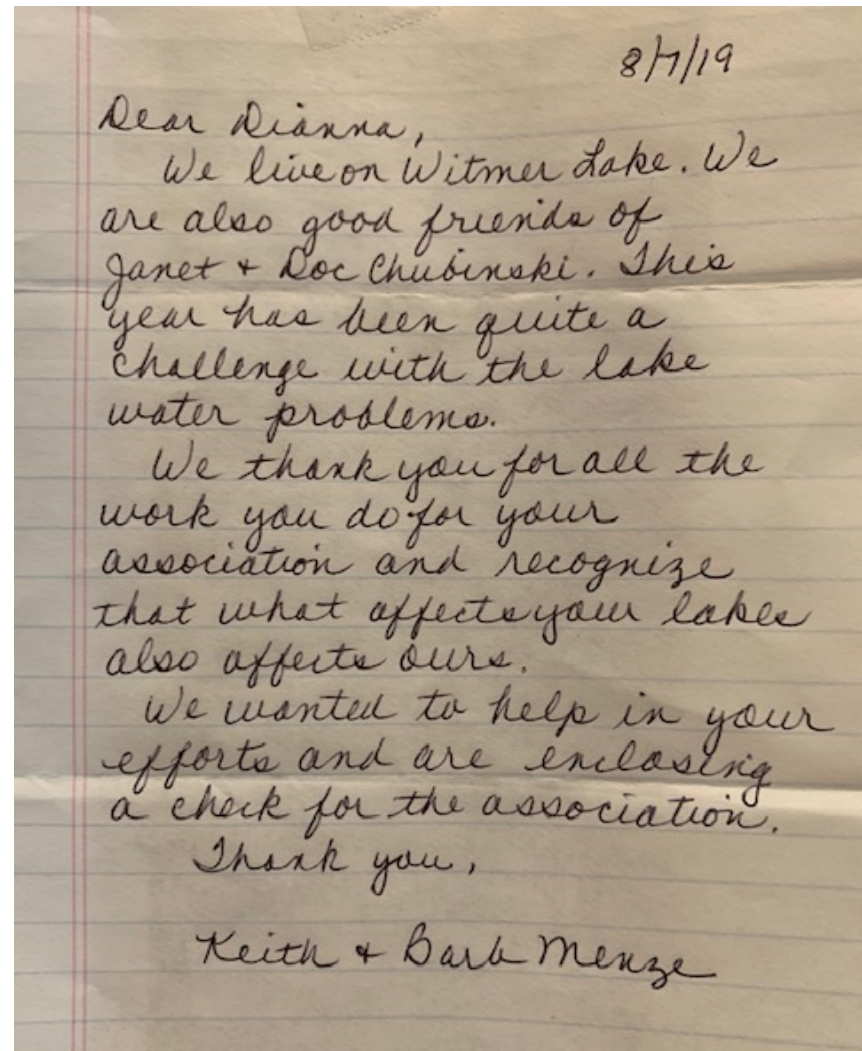 8/7/19
Dear Dianna,
We live on Witmer Lake. We
are also good friends of
Janet + Doc Chubinski. This
year has been quite a
challenge with the lake
water problems.
We thank you for all the
work you do for your
association and recognize
that what affects your lakes
also affects ours.
We wanted to help in your
efforts and are enclosing
a check for the association.
Thank you,
Keith + Barb Menze